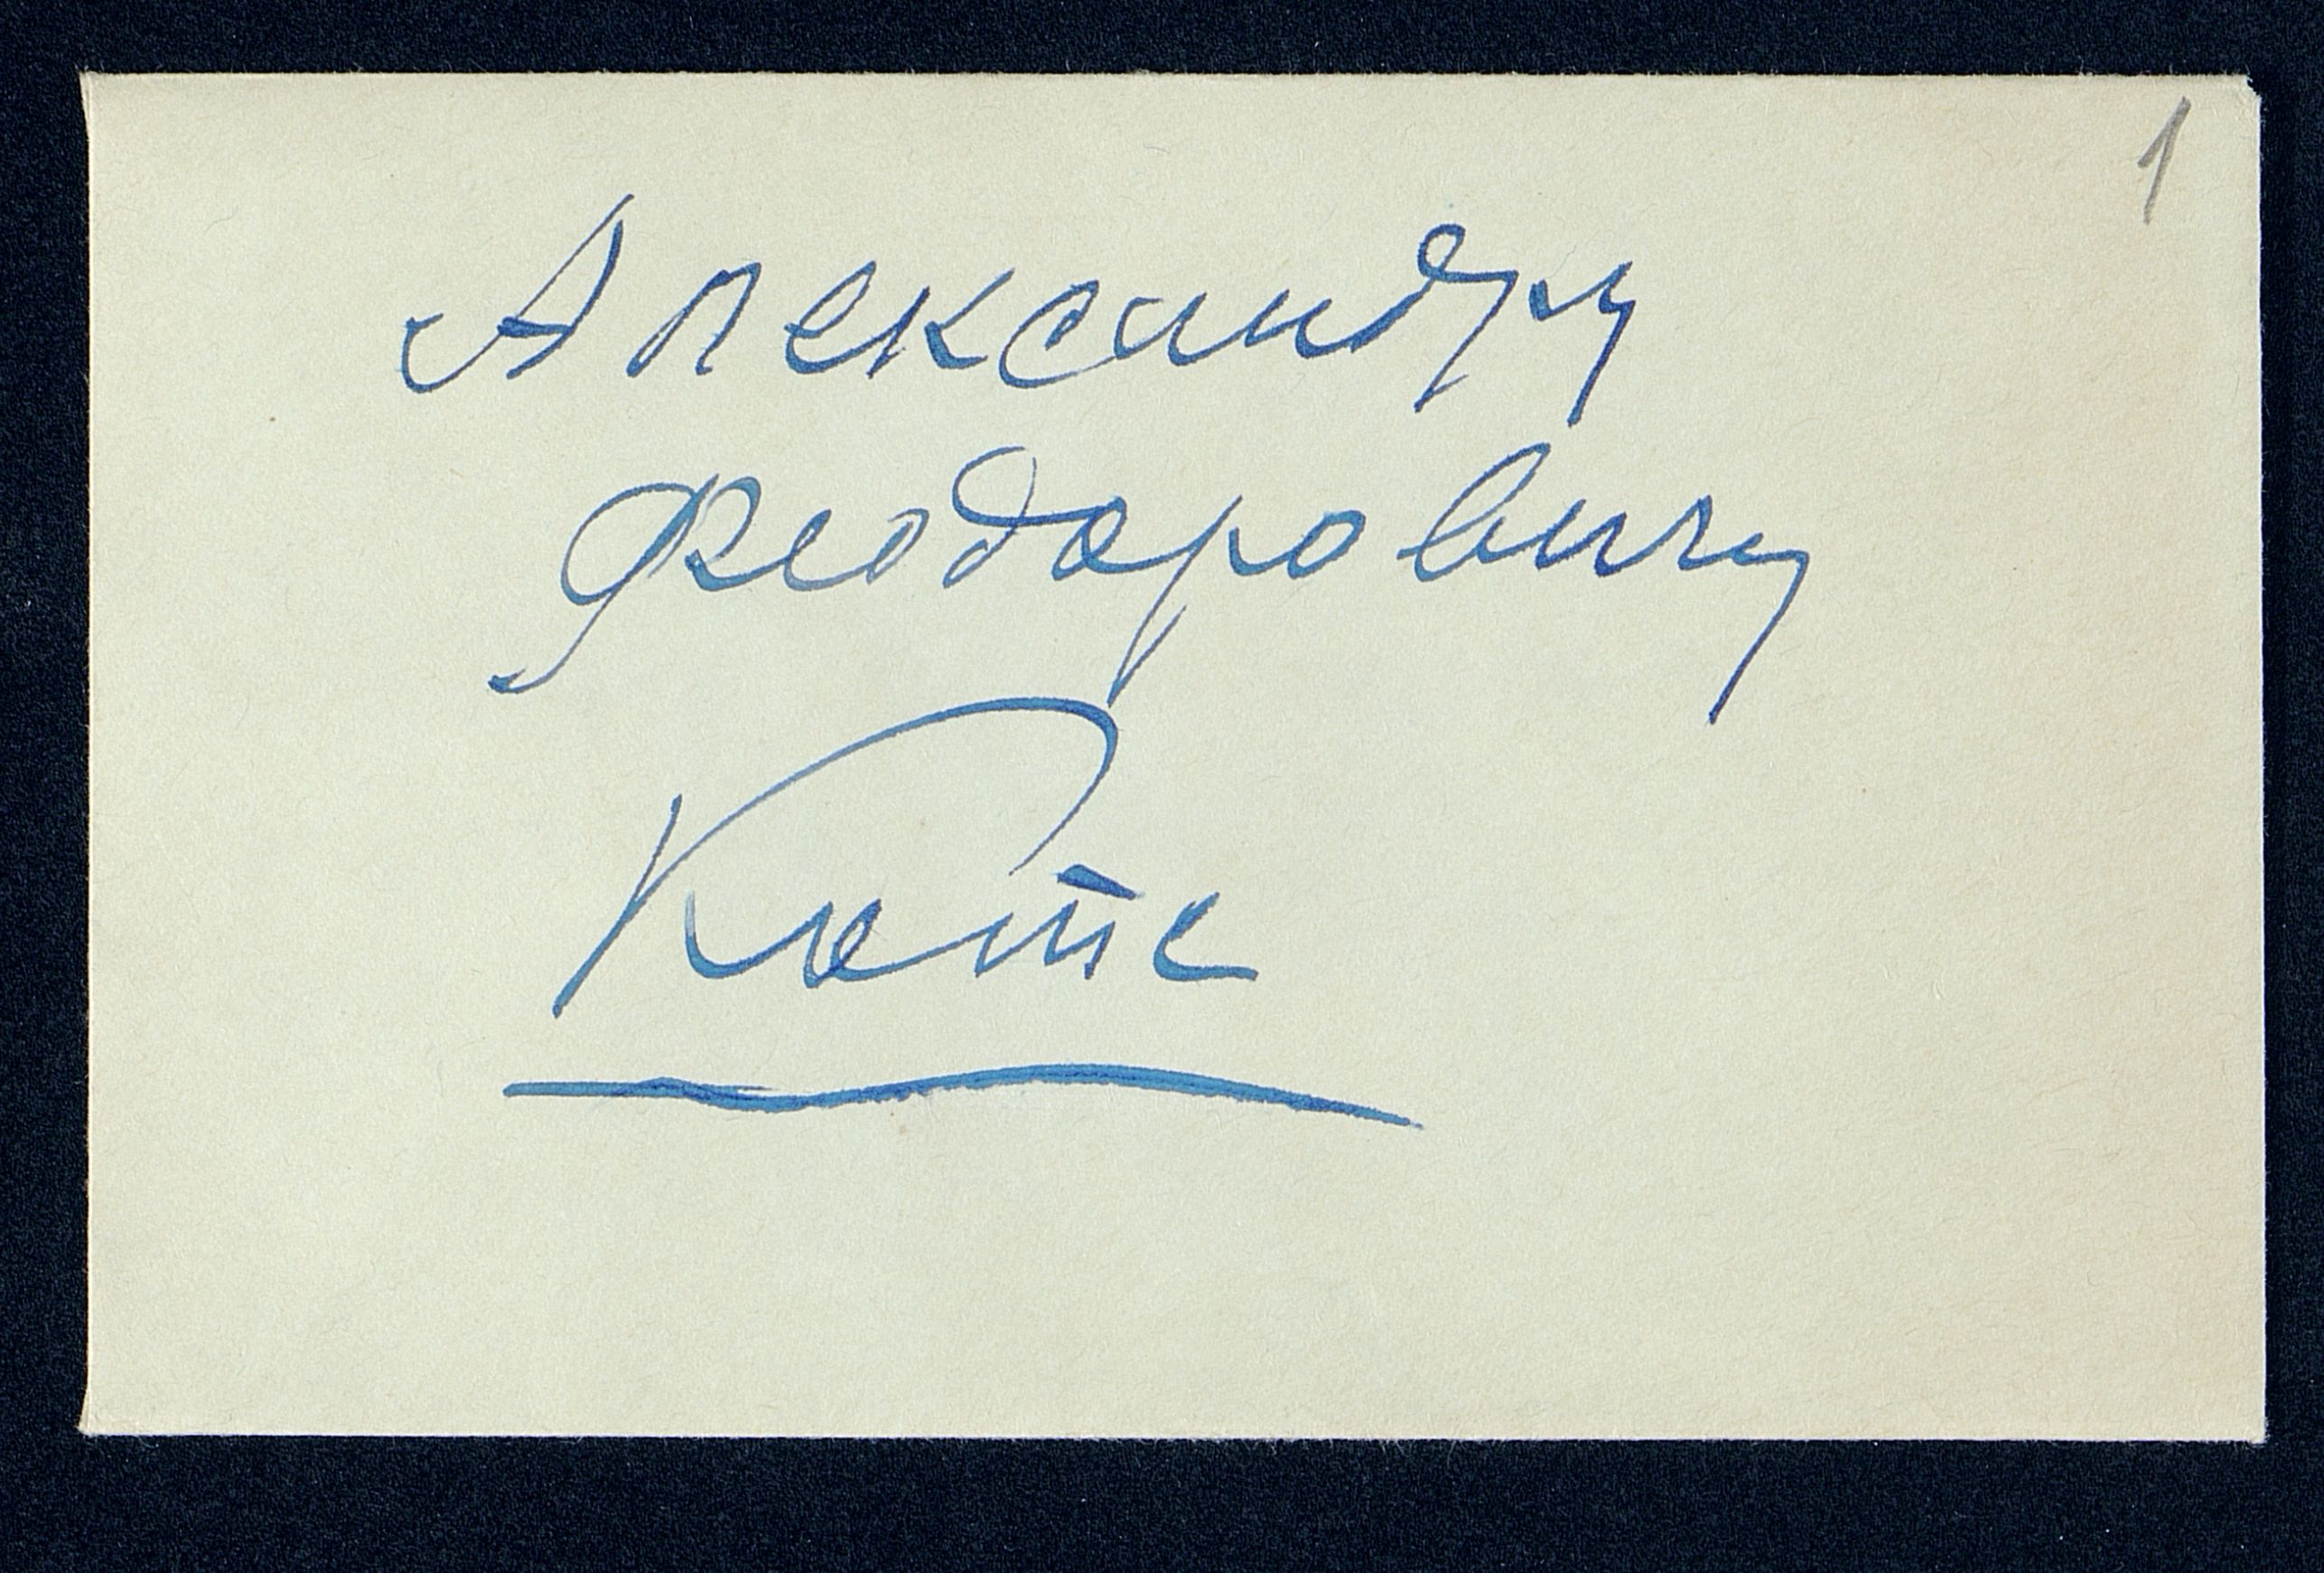 1
Александру
Феодоровичу
Коте